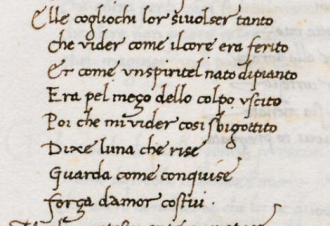 Elle cogliochi lor sivolser tanto
che vider come ilcore era ferito
Et come vnspiritel nato dipianto
Era pel mezo dello colpo vscito
Poi che mi vider cosi sbigottito
Dixe luna che rise
Guarda come conquise
forza damor costui.